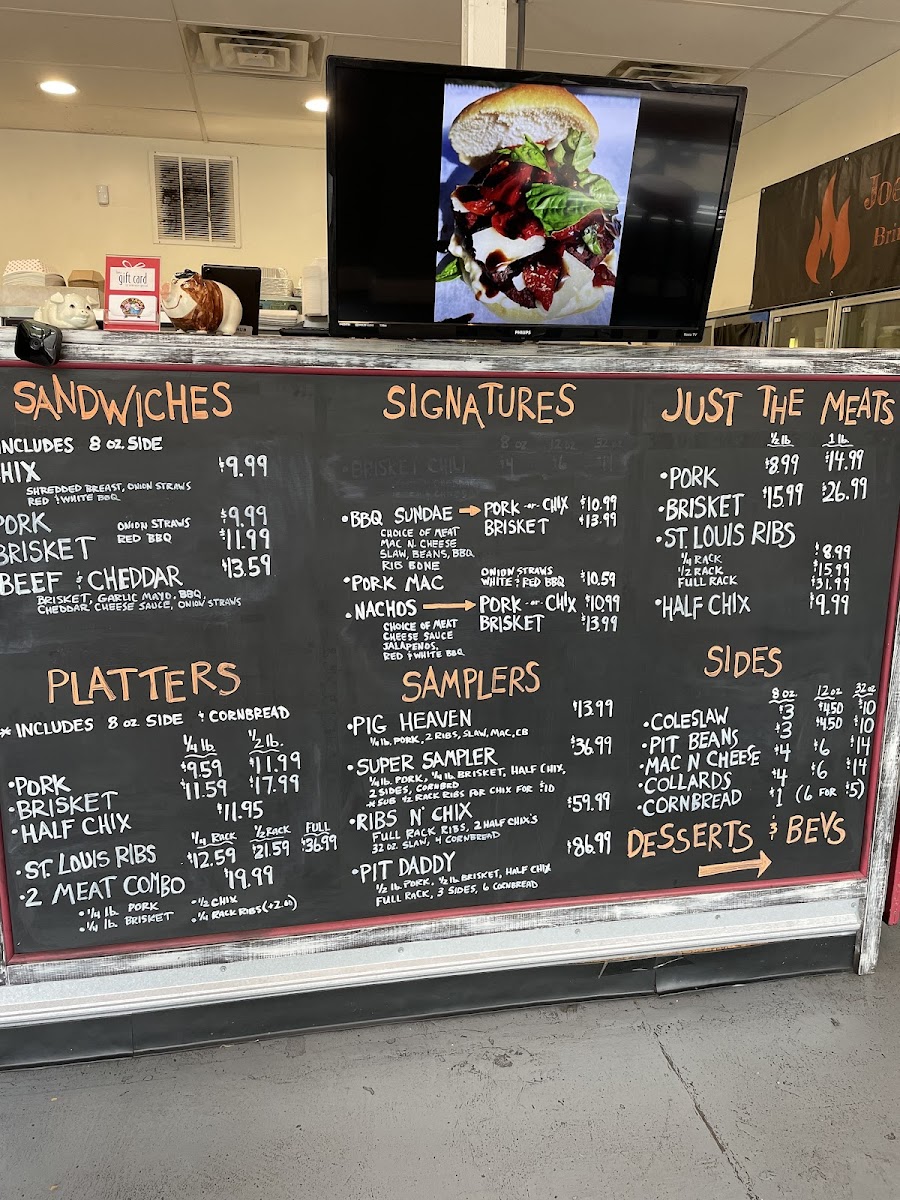 gift card
PHILIPS
Roku TV
SANDWICHES
INCLUDES 8 OZ. SIDE
CHIX $9.99
SHREDDED BREAST, ONION STRAWS
RED & WHITE BBQ
PORK ONION STRAWS $9.99
BRISKET RED BBQ $11.99
BEEF & CHEDDAR $13.59
BRISKET, GARLIC MAYO, BBQ,
CHEDDAR CHEESE SAUCE, ONION STRAWS
PLATTERS
* INCLUDES 8 OZ SIDE & CORNBREAD
1/4 lb. 1/2 lb.
•PORK $9.59 $11.99
•BRISKET $11.59 $17.99
•HALF CHIX $11.95
1/4 RACK 1/2 RACK FULL
•ST. LOUIS RIBS $12.59 $21.59 $36.99
•2 MEAT COMBO $19.99
•1/4 lb. PORK •1/2 CHIX
•1/4 lb. BRISKET •1/4 RACK RIBS (+2.00)
SIGNATURES
8 OZ 12 OZ 32 OZ
•BRISKET CHILI $4 $6
•BBQ SUNDAE PORK -OR- CHIX $10.99
BRISKET $13.99
CHOICE OF MEAT
MAC N. CHEESE
SLAW, BEANS, BBQ
RIB BONE
•PORK MAC ONION STRAWS
WHITE & RED BBQ $10.59
•NACHOS PORK -OR- CHIX $10.99
BRISKET $13.99
CHOICE OF MEAT
CHEESE SAUCE
JALAPENOS,
RED & WHITE BBQ
SAMPLERS
•PIG HEAVEN $13.99
1/4 lb. PORK, 2 RIBS, SLAW, MAC, CB
•SUPER SAMPLER $36.99
1/4 lb. PORK, 1/4 lb. BRISKET, HALF CHIX,
2 SIDES, CORNBRD
*SUB 1/2 RACK RIBS FOR CHIX FOR $10
•RIBS N' CHIX $59.99
FULL RACK RIBS, 2 HALF CHIX'S
32 OZ. SLAW, 4 CORNBREAD
•PIT DADDY $86.99
1/2 lb. PORK, 1/2 lb. BRISKET, HALF CHIX
FULL RACK, 3 SIDES, 6 CORNBREAD
JUST THE MEATS
1/2 lb. 1 lb.
•PORK $8.99 $14.99
•BRISKET $15.99 $26.99
•ST. LOUIS RIBS
1/4 RACK $8.99
1/2 RACK $15.99
FULL RACK $31.99
•HALF CHIX $9.99
SIDES
8 OZ. 12 OZ 32 OZ
•COLESLAW $3 $4.50 $10
•PIT BEANS $3 $4.50 $10
•MAC N CHEESE $4 $6 $14
•COLLARDS $4 $6 $14
•CORNBREAD $1 (6 FOR $5)
DESSERTS & BEVS